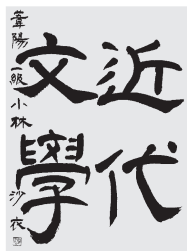 近代
文學
葦陽 一級 小林 沙衣